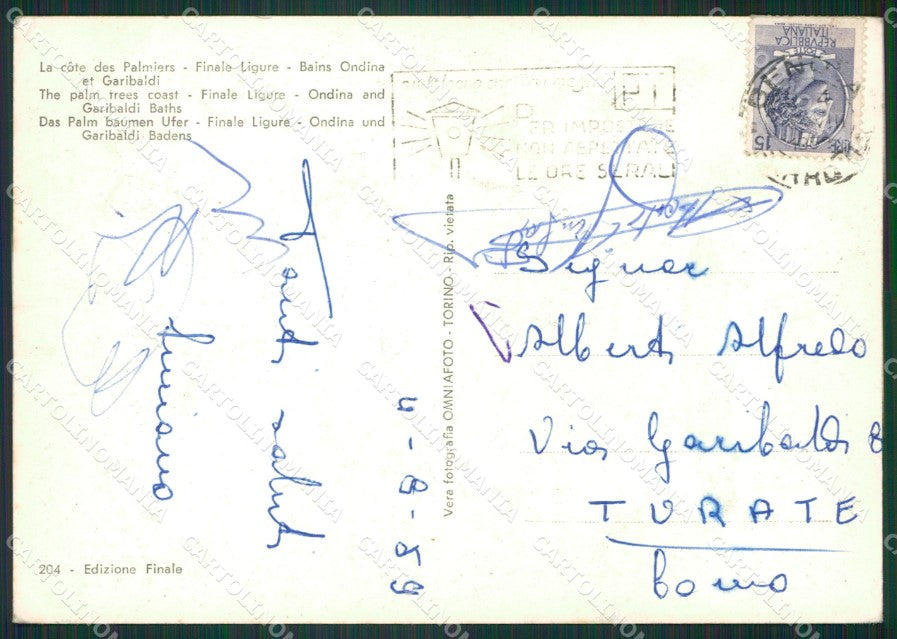 La côte des Palmiers - Finale Ligure - Bains Ondina
et Garibaldi
The palm trees coast - Finale Ligure - Ondina and
Garibaldi Baths
Das Palm bäumen Ufer - Finale Ligure - Ondina und
Garibaldi Badens
PT
PER IMPOSTARE
NON ASPETTATE
LE ORE SERALI
REPVBBLICA
ITALIANA
LIRE 15
Tanti saluti
Luciano
4-8-59
Vera fotografia OMNIAFOTO - TORINO - Rip. vietata
Signor
Alberti Alfredo
Via Garibaldi 8
TURATE
Como
204 - Edizione Finale
CARTOLINOMANIA